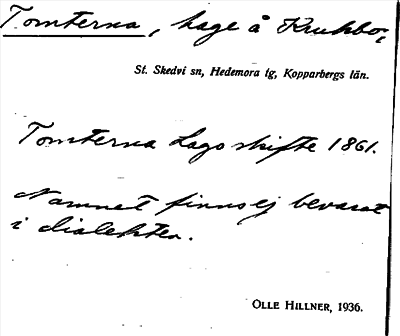 Tomterna, hage å Krukbo,
St. Skedvi sn, Hedemora tg, Kopparbergs län.
Tomterna Lagaskifte 1861.
Namnet finns ej bevarat
i dialekten.
OLLE HILLNER, 1936.